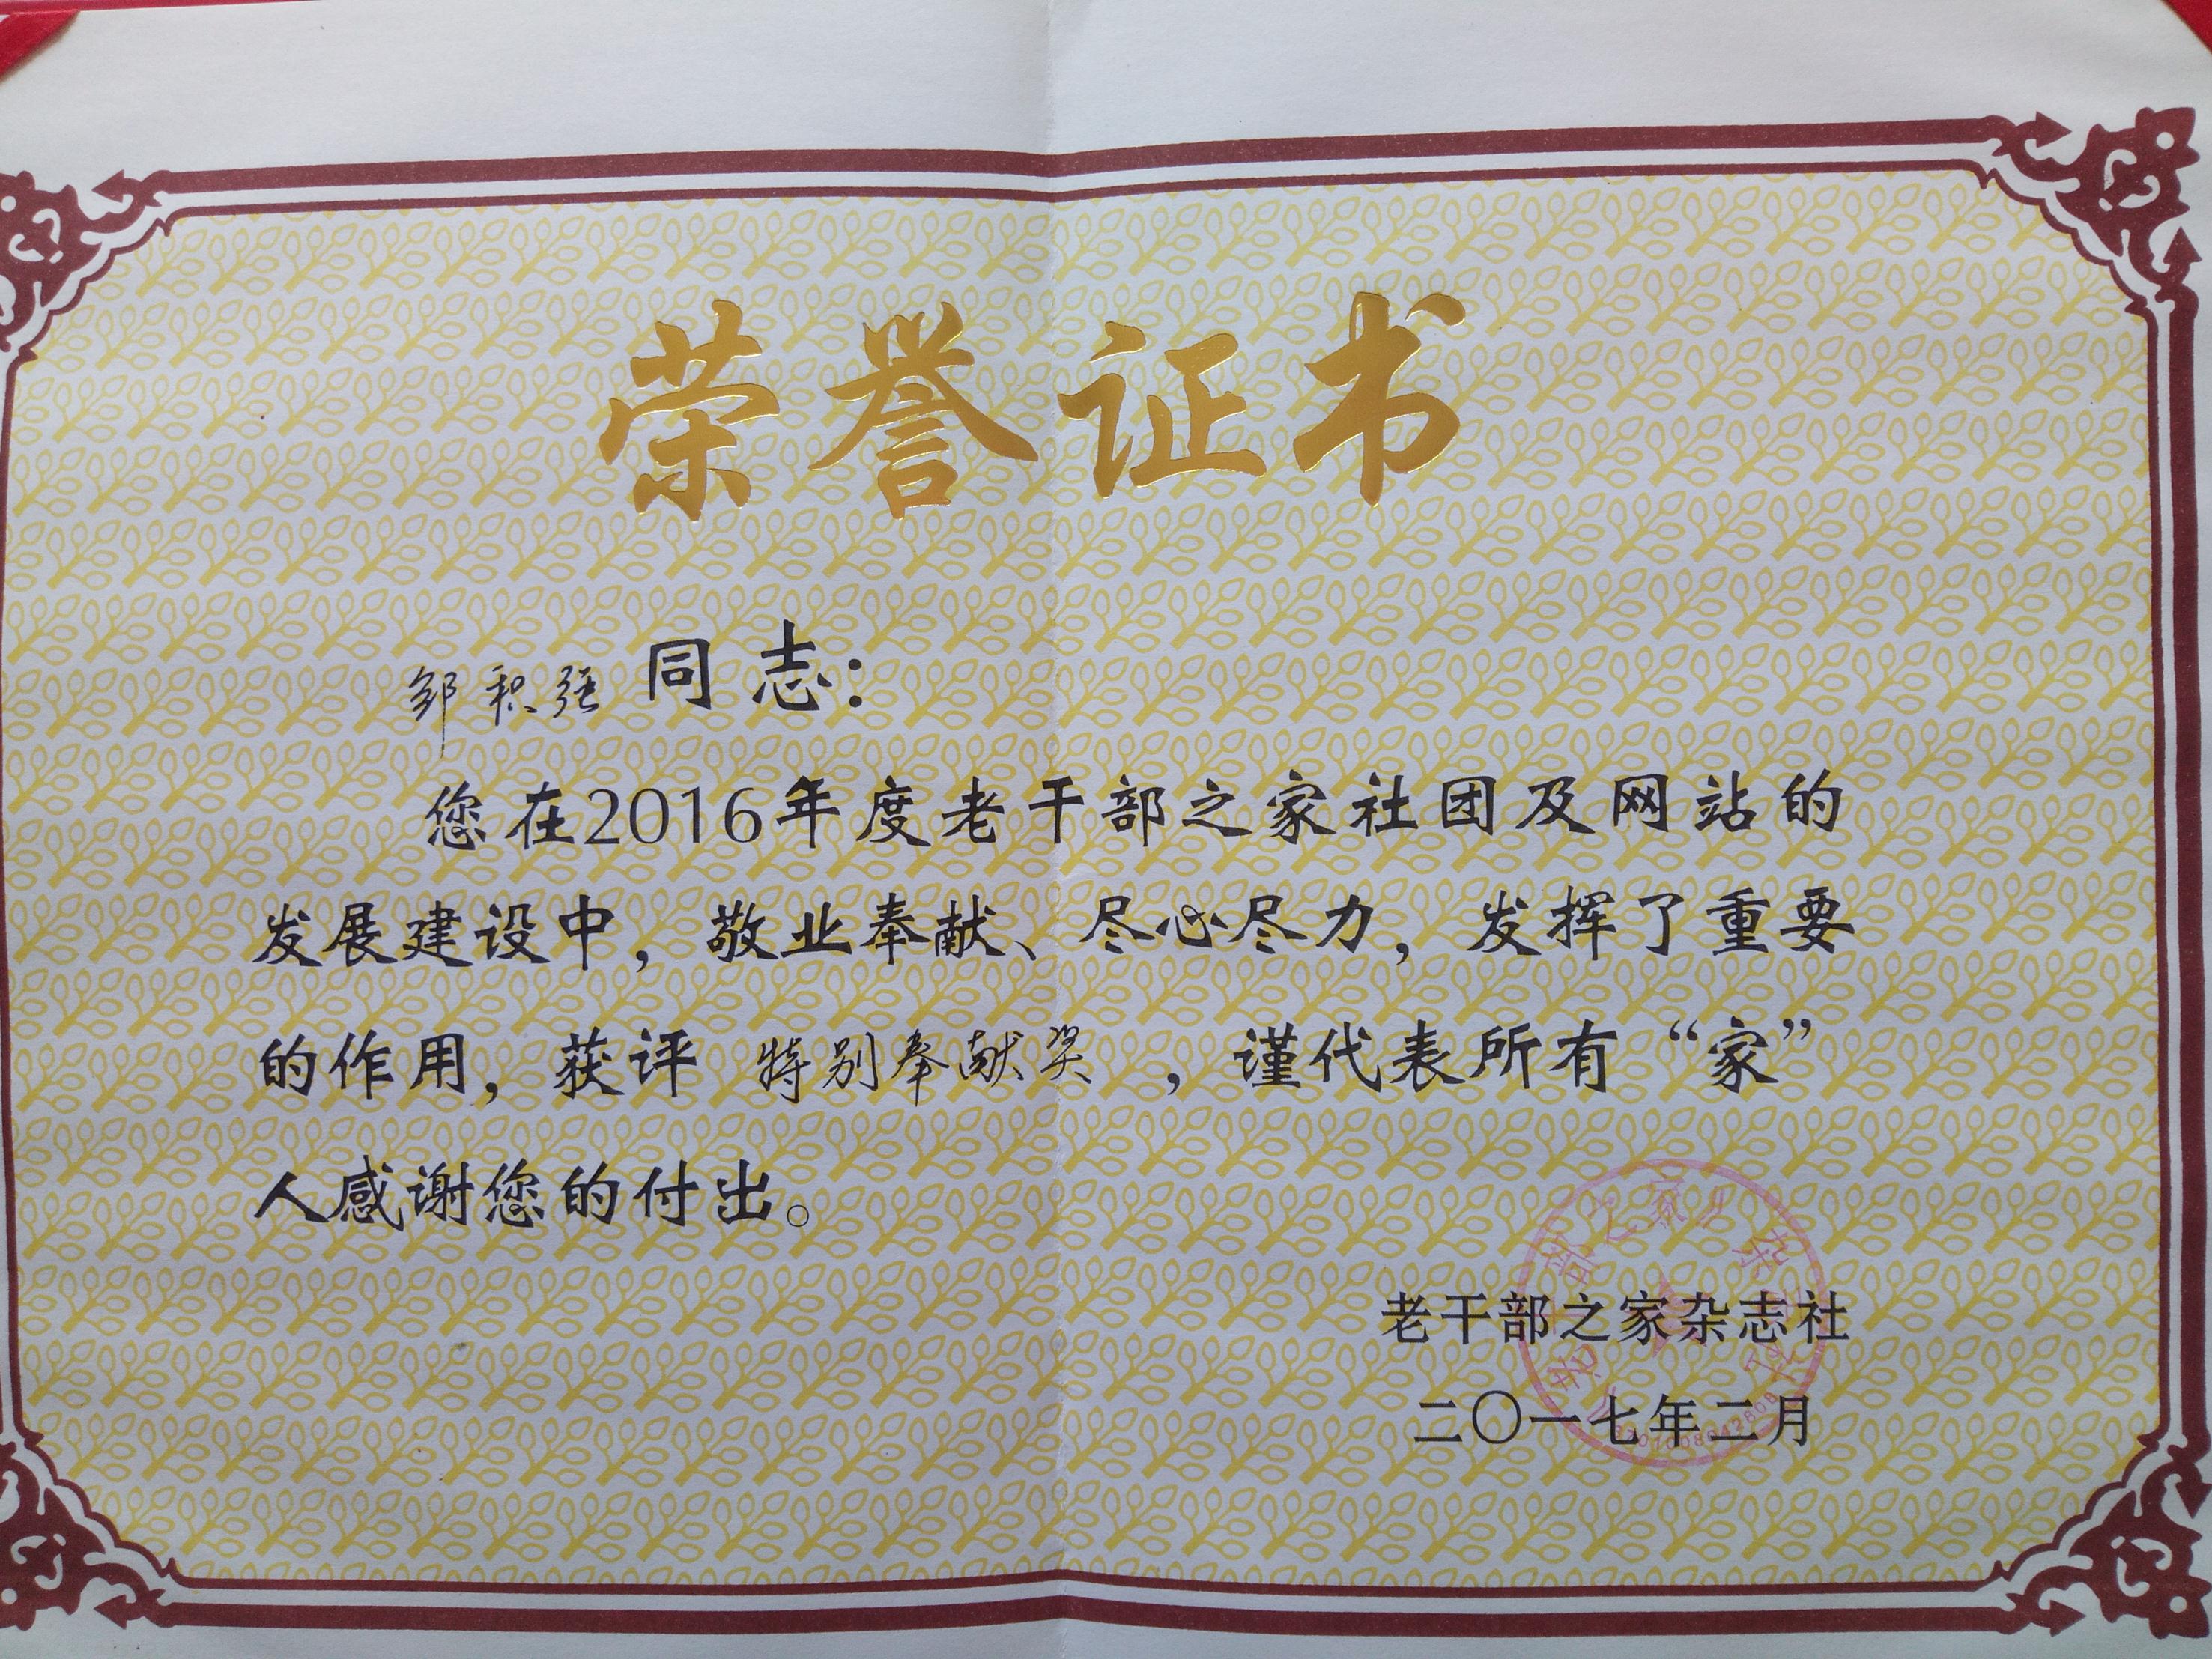 荣誉证书
邹积强 同志：
您在2016年度老干部之家社团及网站的
发展建设中，敬业奉献、尽心尽力，发挥了重要
的作用，获评 特别奉献奖 ，谨代表所有“家”
人感谢您的付出。
老干部之家杂志社
二〇一七年二月